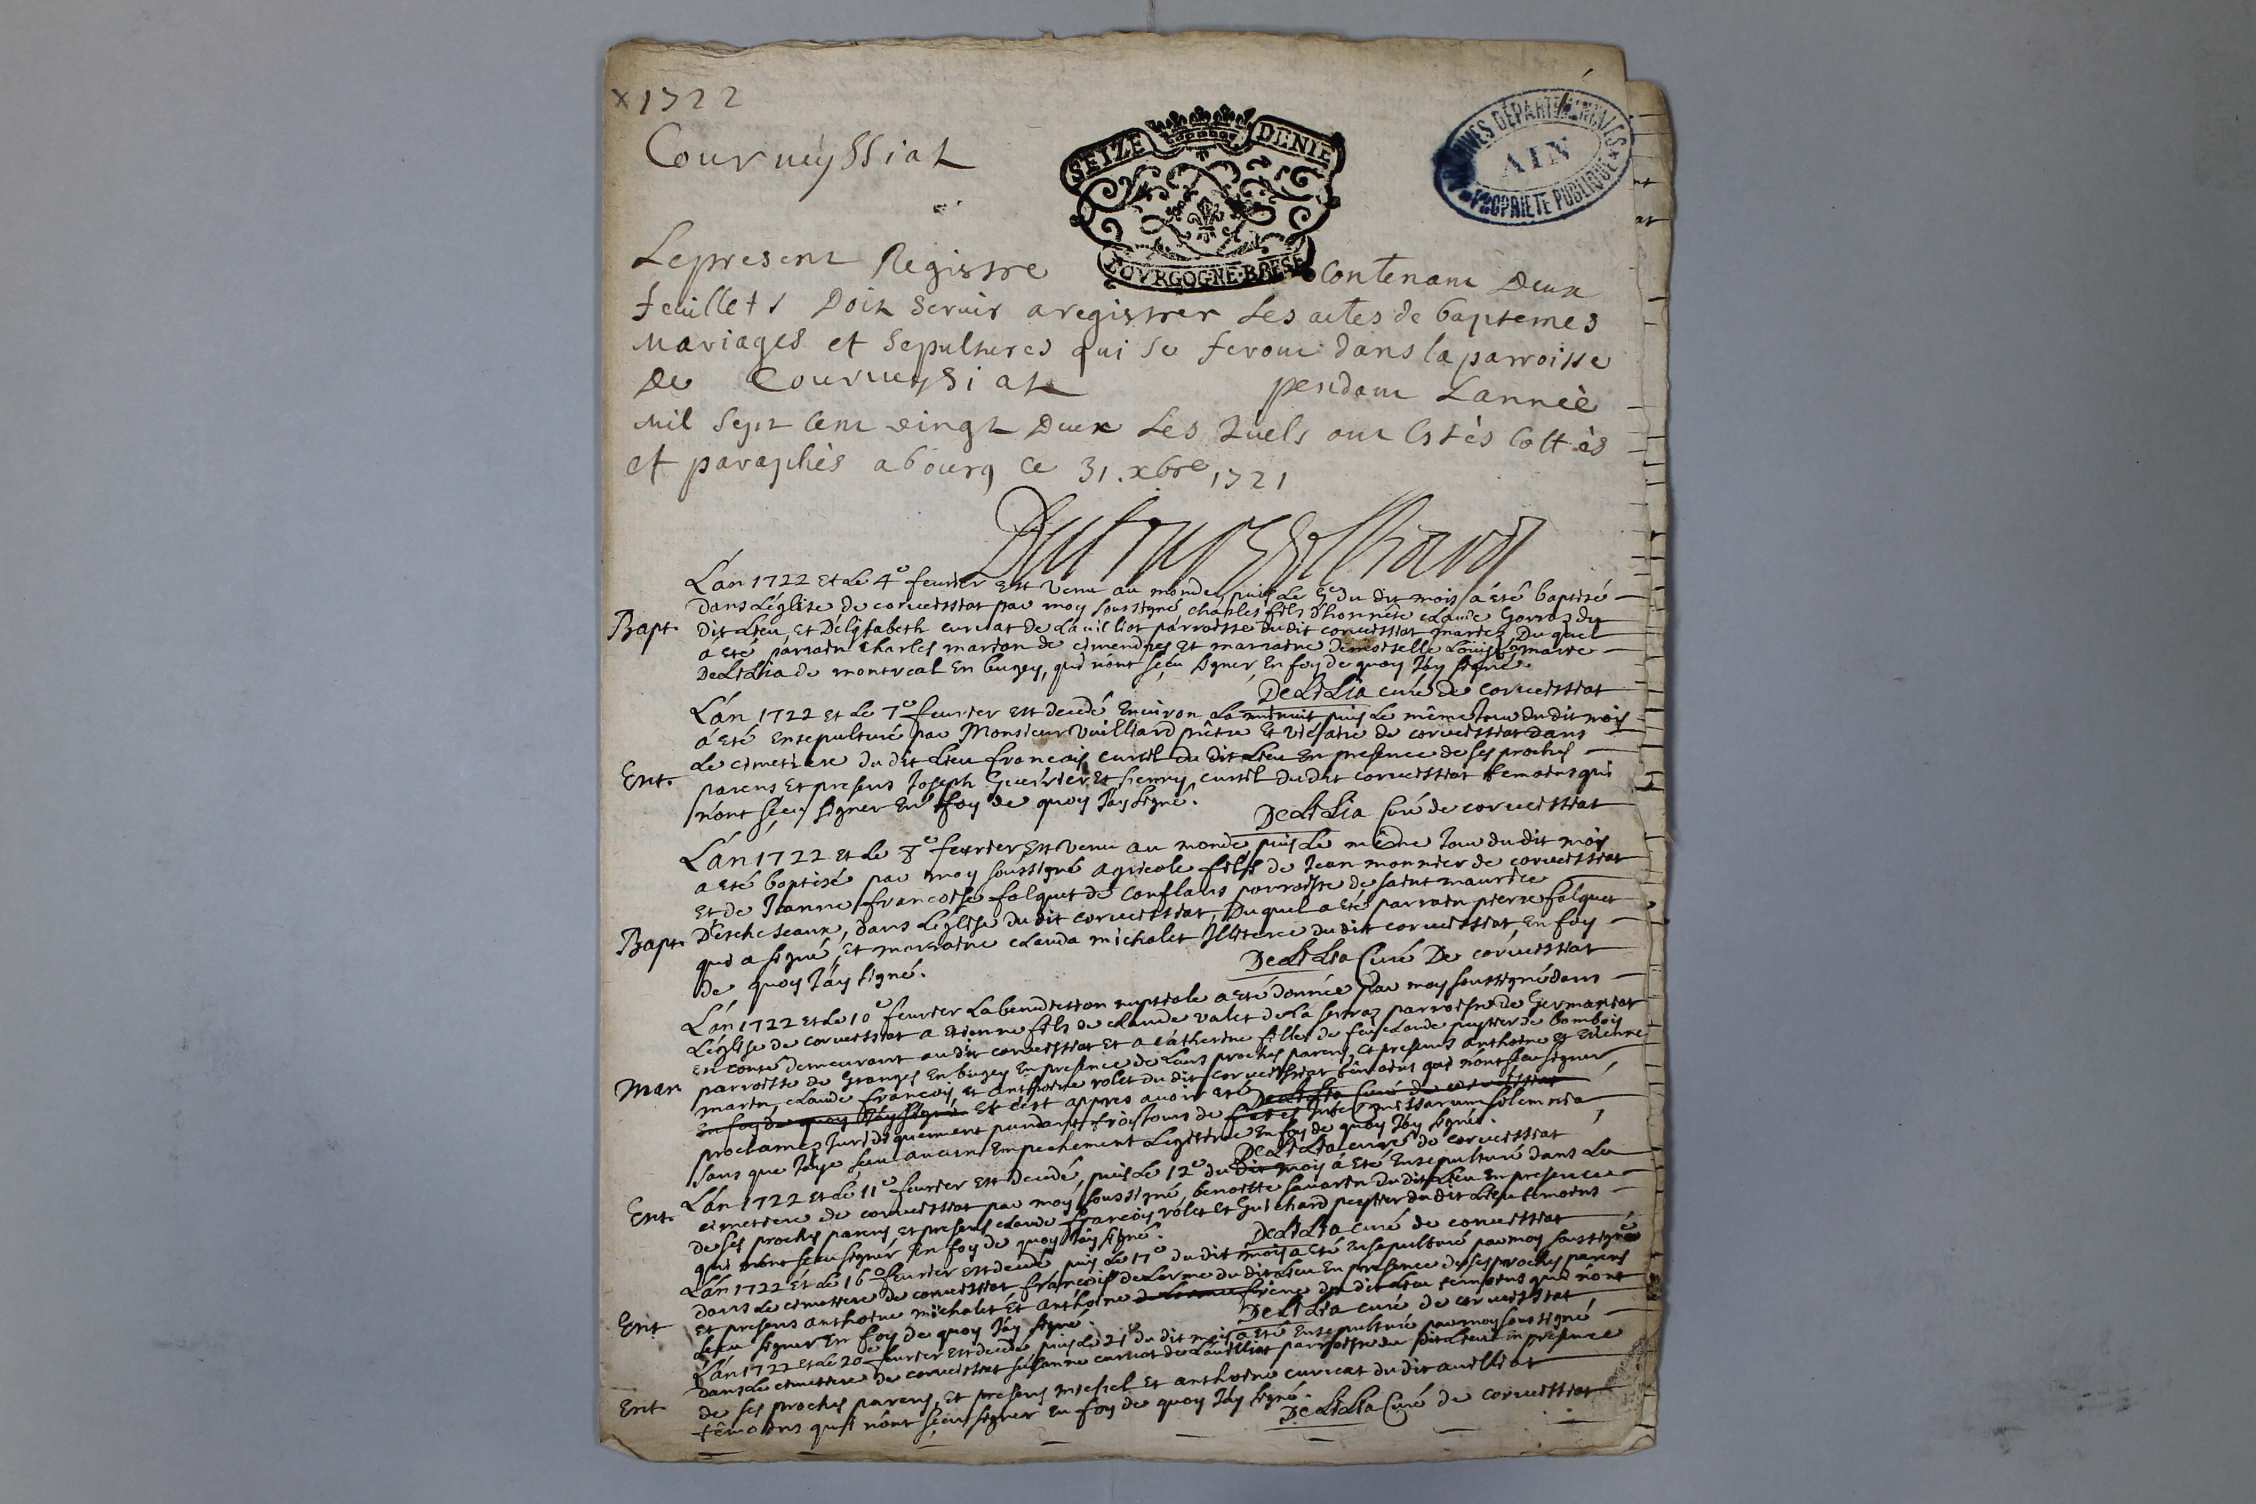 x 1722
Courveyssiat
SEIZE DENIE
BOVRGOGNE·BRESE
ARCHIVES DÉPARTEMENTALES
AIN
PROPRIETE PUBLIQUE
Le present Registre Contenant Deux
feuillets Doit servir a registrer Les actes de baptemes
Mariages et sepultures qui se feront dans la parroisse
De Courveysiat pendant L'année
Mil sept cent vingt Deux Les quels ont estés cottés
et paraphés a bourg ce 31. xbre 1721
L'an 1722 et Le 4e fevrier est venu au monde, puis Le 5e du dit mois a été baptisé
Bapt. Dans L'église de corveissiat par moy soussigné Charles fils d'honnête Claude Gorraz du
dit Lieu, et D'elizabeth curvat de Lavilliat parroisse dudit corveissiat mariez, Du quel
a été parrain Charles marion de cimendres et marraine demoiselle Louise marie
DeLiLia de montreal en bugey, qui n'ont sceu signer, En foy de quoy J'ay signé
DeLiLia curé de corveissiat
L'an 1722 et Le 7e fevrier est decedé Environ La minuit puis Le même Jour du dit mois
a été Ensepulturé par Monsieur Vuilliard prêtre et vicaire de corveissiat dans
Ent. Le cimetiere du dit Lieu francois curtil du dit Lieu En presence de ses proches
parens Et presens Joseph Guerrier et henry curtil du dit corveissiat temoins qui
n'ont sceu signer En foy de quoy J'ay signé.
DeLiLia Curé de corveissiat
L'an 1722 et Le 8e fevrier est venu au monde, puis Le même Jour du dit mois
a été baptisé par moy soussigné agricole fils de Jean monnier de corveissiat
et de Jeanne francoise falquet de Conflans parroisse de saint maurice
Bapt. D'escheseaux, dans L'église du dit corveissiat, Du quel a été parrain pierre falquet
qui a signé, et marraine clauda michalet Illiteree du dit corveissiat, En foy
de quoy J'ay signé.
DeLiLia Curé De corveissiat
L'an 1722 et Le 10e fevrier La benediction nuptiale a été donnée par moy soussigné dans
L'église de corveissiat a Etienne fils de claude valet de La serraz parroisse de Germaniat
en comté demeurant au dit corveissiat et a Catherine fille de feu claude puysier de bombois
Mar parroisse de Granges En bugey En presence de Leurs proches parens, et presens anthoine et Etienne
marin, claude francois, et anthoine volet du dit corveissiat témoins qui n'ont sceu signer
En foy de quoy J'ay signé Et c'est appres avoir eté DeLiLia Curé de corveissiat
proclamez Juridiquement pendant trois Jours de fetes Inter missarum solemnia,
sans que J'aye sceu aucun Empechement Legitime En foy de quoy J'ay signé.
DeLiLia curé de corveissiat
Ent. L'an 1722 et Le 11e fevrier est decedé, puis Le 12e du dit moy a été Ensepulturé dans Le
cimetiere de corveissiat par moy soussigné, benoitte savarin du dit Lieu En presence
de ses proches parens, et presens claude francois volet et Guichard puysier du dit Lieu temoins
qui n'ont sceu signer En foy de quoy J'ay signé.
DeLiLia curé de corveissiat
L'an 1722 et Le 16e fevrier est decedé puis Le 17e du dit mois a été Ensepulturé par moy soussigné
dans Le cimetiere de corveissiat francois de Lorme du dit Lieu En presence de ses proches parens
Ent Et presens anthoine michalet et anthoine de Lorme du dit Lieu temoins qui n'ont
sceu signer En foy de quoy J'ay signé.
DeLiLia curé de corveissiat
L'an 1722 et Le 20e fevrier est decedé puis Le 21e du dit mois a été Ensepulturé par moy soussigné
dans Le cimetiere de corveissiat susanne curvat de Lavilliat parroisse du dit Lieu En presence
Ent de ses proches parens, et presens michel et anthoine curvat du dit avilliat
témoins qui n'ont sceu signer En foy de quoy J'ay signé.
DeLiLia Curé de corveissiat